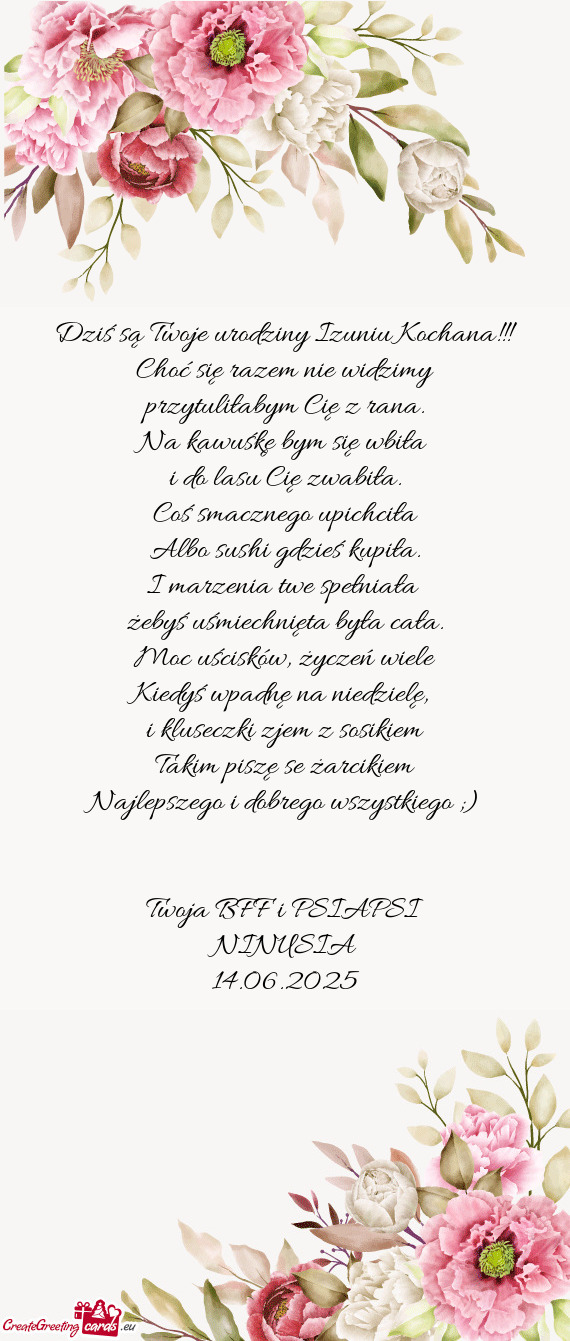 Dziś są Twoje urodziny Izuniu Kochana!!!
Choć się razem nie widzimy
przytuliłabym Cię z rana.
Na kawuśkę bym się wbiła
i do lasu Cię zwabiła.
Coś smacznego upichciła
Albo sushi gdzieś kupiła.
I marzenia twe spełniała
żebyś uśmiechnięta była cała.
Moc uścisków, życzeń wiele
Kiedyś wpadnę na niedzielę,
i kluseczki zjem z sosikiem
Takim piszę se żarcikiem
Najlepszego i dobrego wszystkiego ;)
Twoja BFF i PSIAPSI
NINUSIA
14.06.2025
CreateGreeting cards .eu